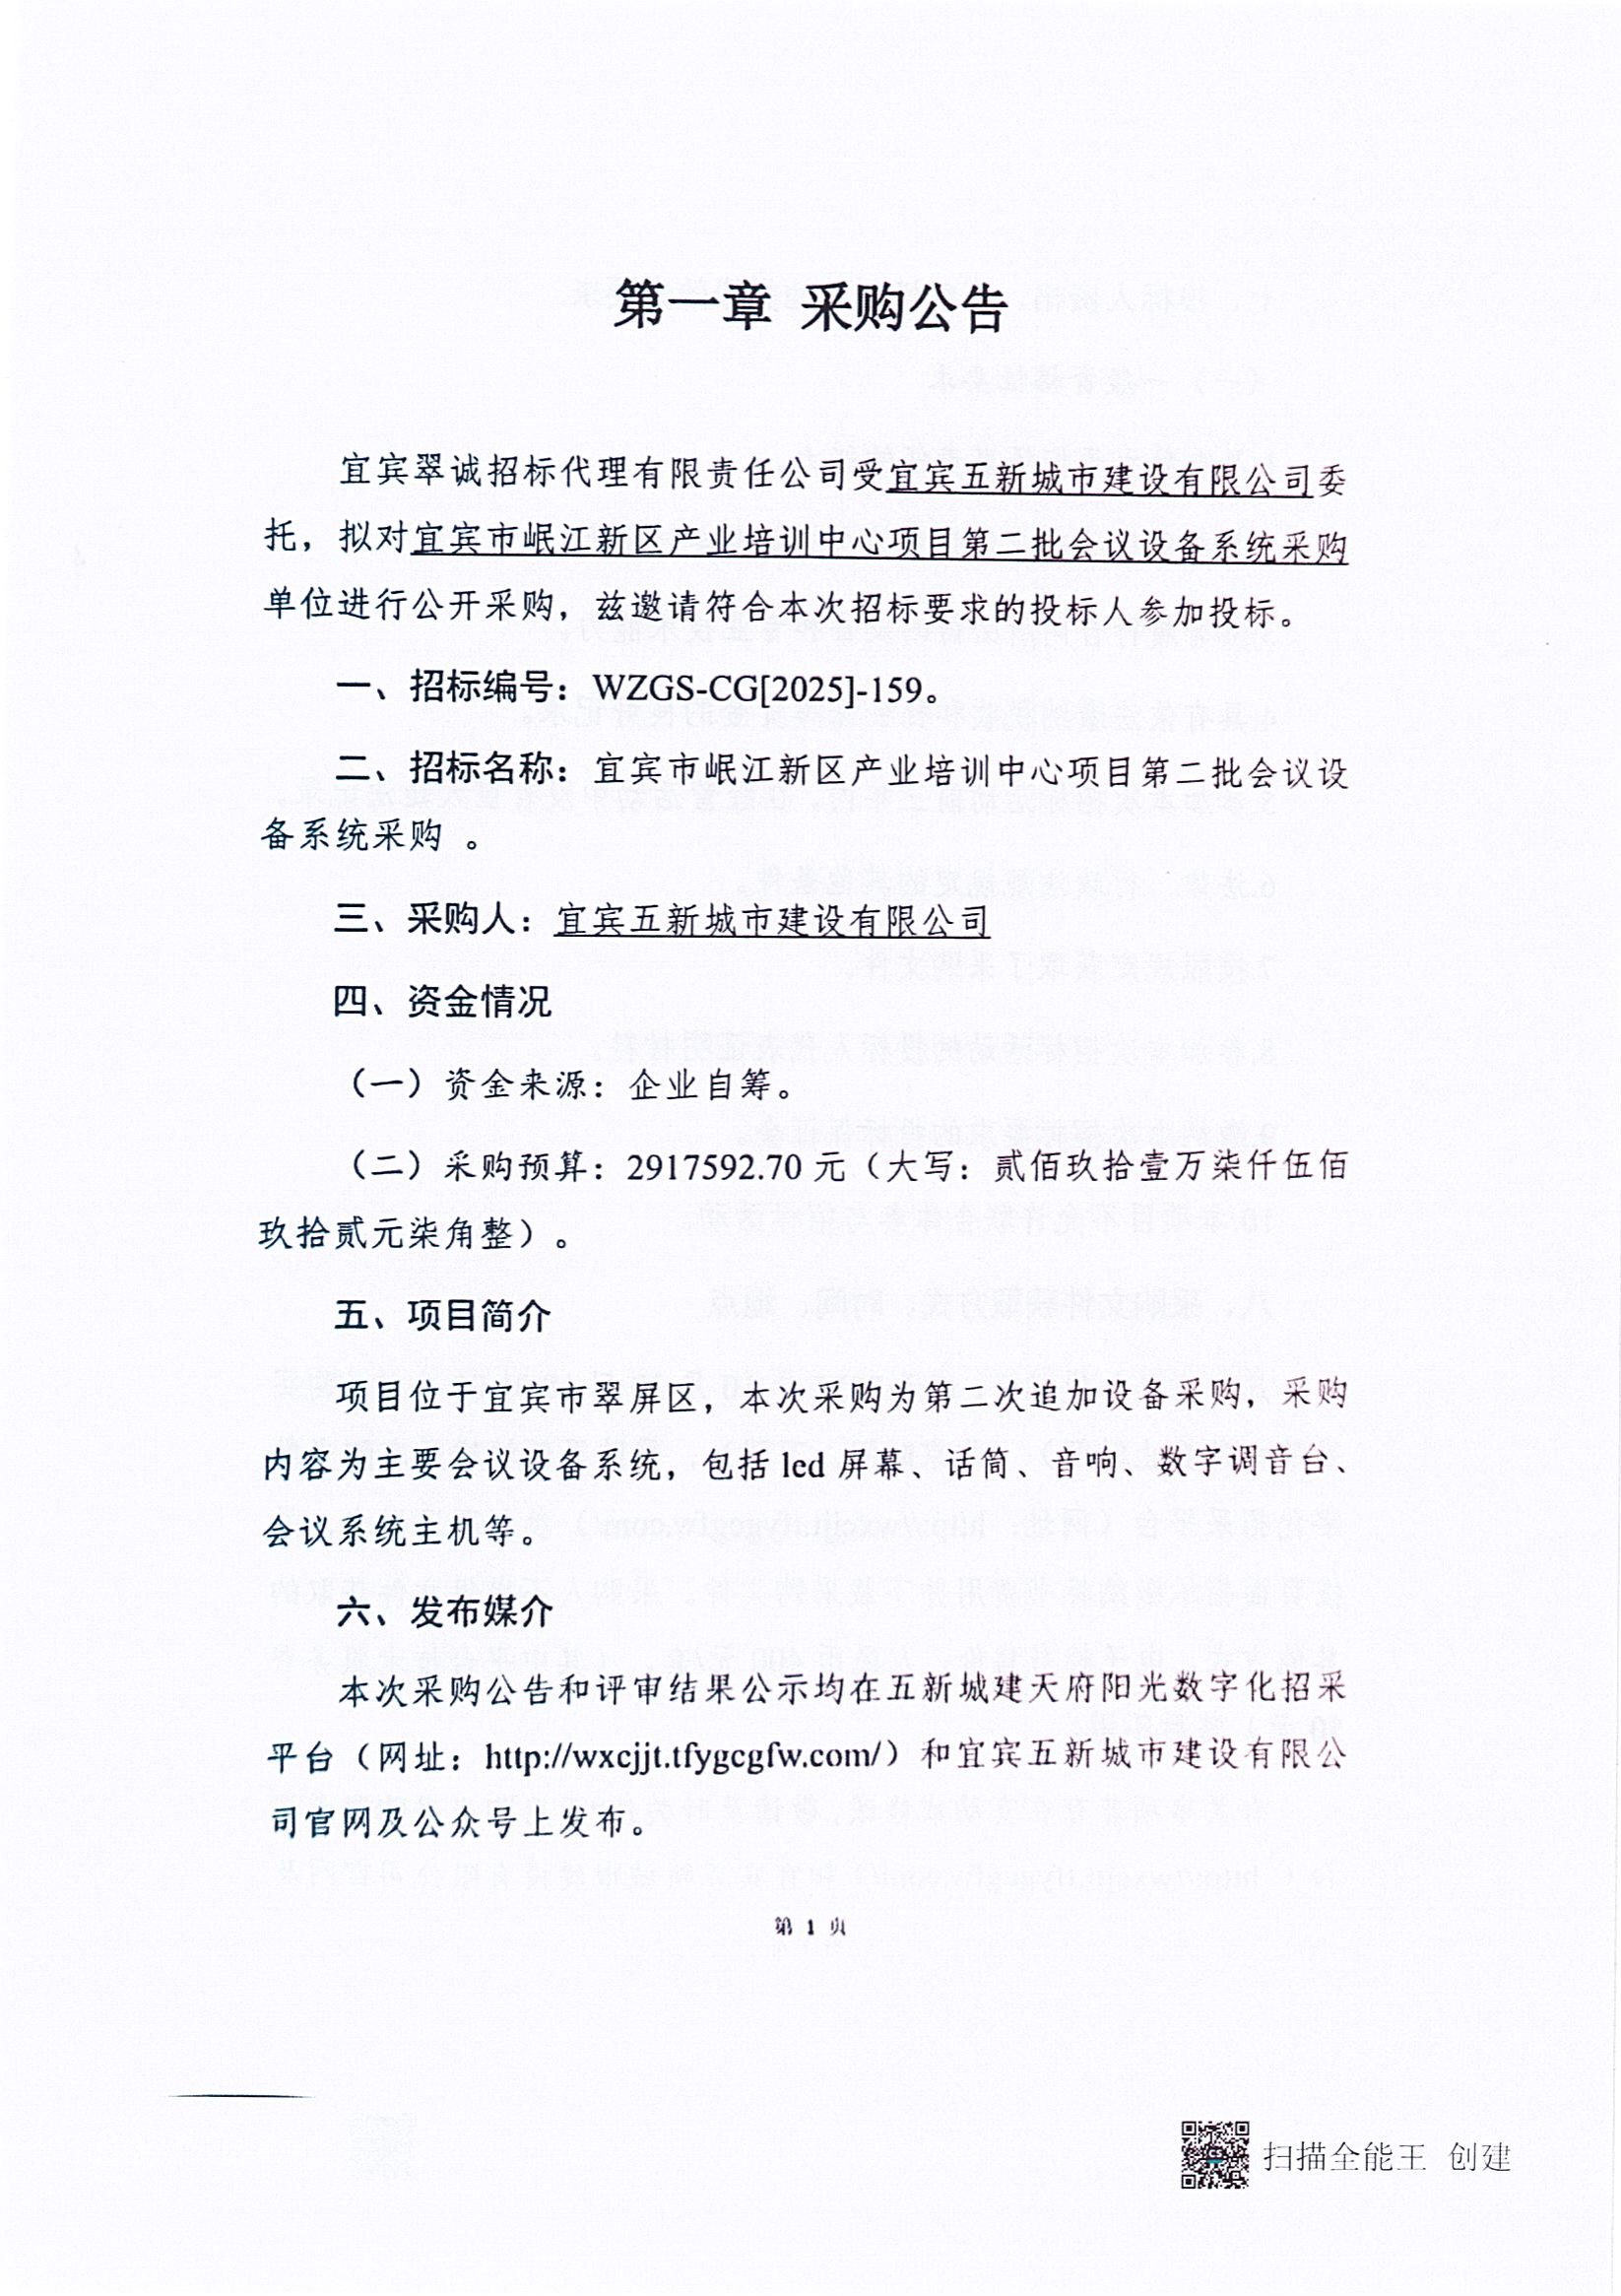 第一章 采购公告
宜宾翠诚招标代理有限责任公司受宜宾五新城市建设有限公司委
托，拟对宜宾市岷江新区产业培训中心项目第二批会议设备系统采购
单位进行公开采购，兹邀请符合本次招标要求的投标人参加投标。
一、招标编号：WZGS-CG[2025]-159。
二、招标名称：宜宾市岷江新区产业培训中心项目第二批会议设
备系统采购 。
三、采购人：宜宾五新城市建设有限公司
四、资金情况
（一）资金来源：企业自筹。
（二）采购预算：2917592.70 元（大写：贰佰玖拾壹万柒仟伍佰
玖拾贰元柒角整）。
五、项目简介
项目位于宜宾市翠屏区，本次采购为第二次追加设备采购，采购
内容为主要会议设备系统，包括 led 屏幕、话筒、音响、数字调音台、
会议系统主机等。
六、发布媒介
本次采购公告和评审结果公示均在五新城建天府阳光数字化招采
平台（网址：http://wxcjjt.tfygcgfw.com/）和宜宾五新城市建设有限公
司官网及公众号上发布。
第 1 页
扫描全能王 创建